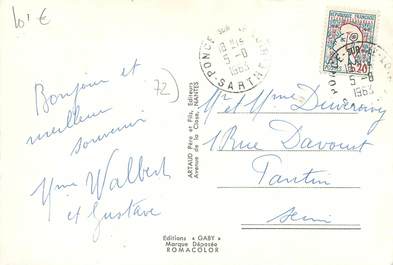 10f €
PONCE SUR
18 H 15
5-8
1963
SARTHE
REPUBLIQUE FRANÇAISE
0,20
PONCE-SUR
5-8
1963
72)
Bonjour et
meilleur
souvenir
Mme Walbert
et Gustave
ARTAUD Père et Fils, Editeurs
Avenue de la Close, NANTES
Mr et Mme
1 Rue Davoust
Pantin
Seine
Editions « GABY »
Marque Déposée
ROMACOLOR